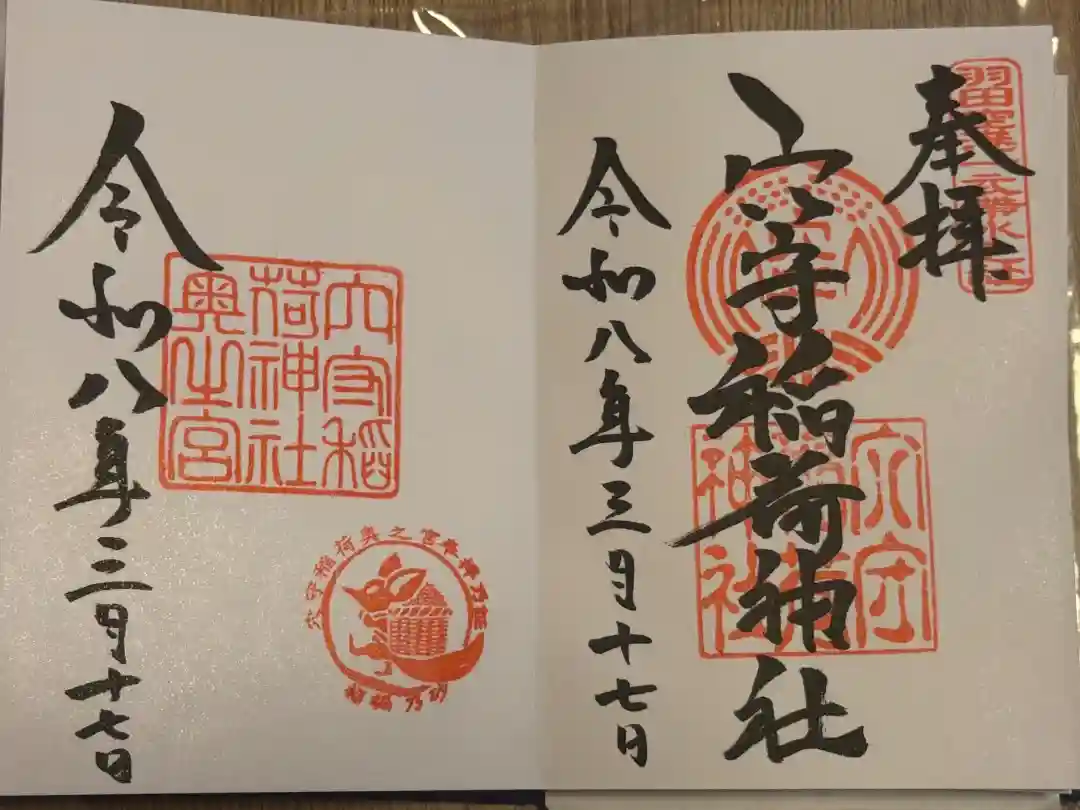 奉拝
穴守稲荷神社
穴守
稲荷
神社
令和八年三月十七日
穴守稲
荷神社
奥之宮
穴守稲荷奥之宮奉拝乃証
令和八年三月十七日